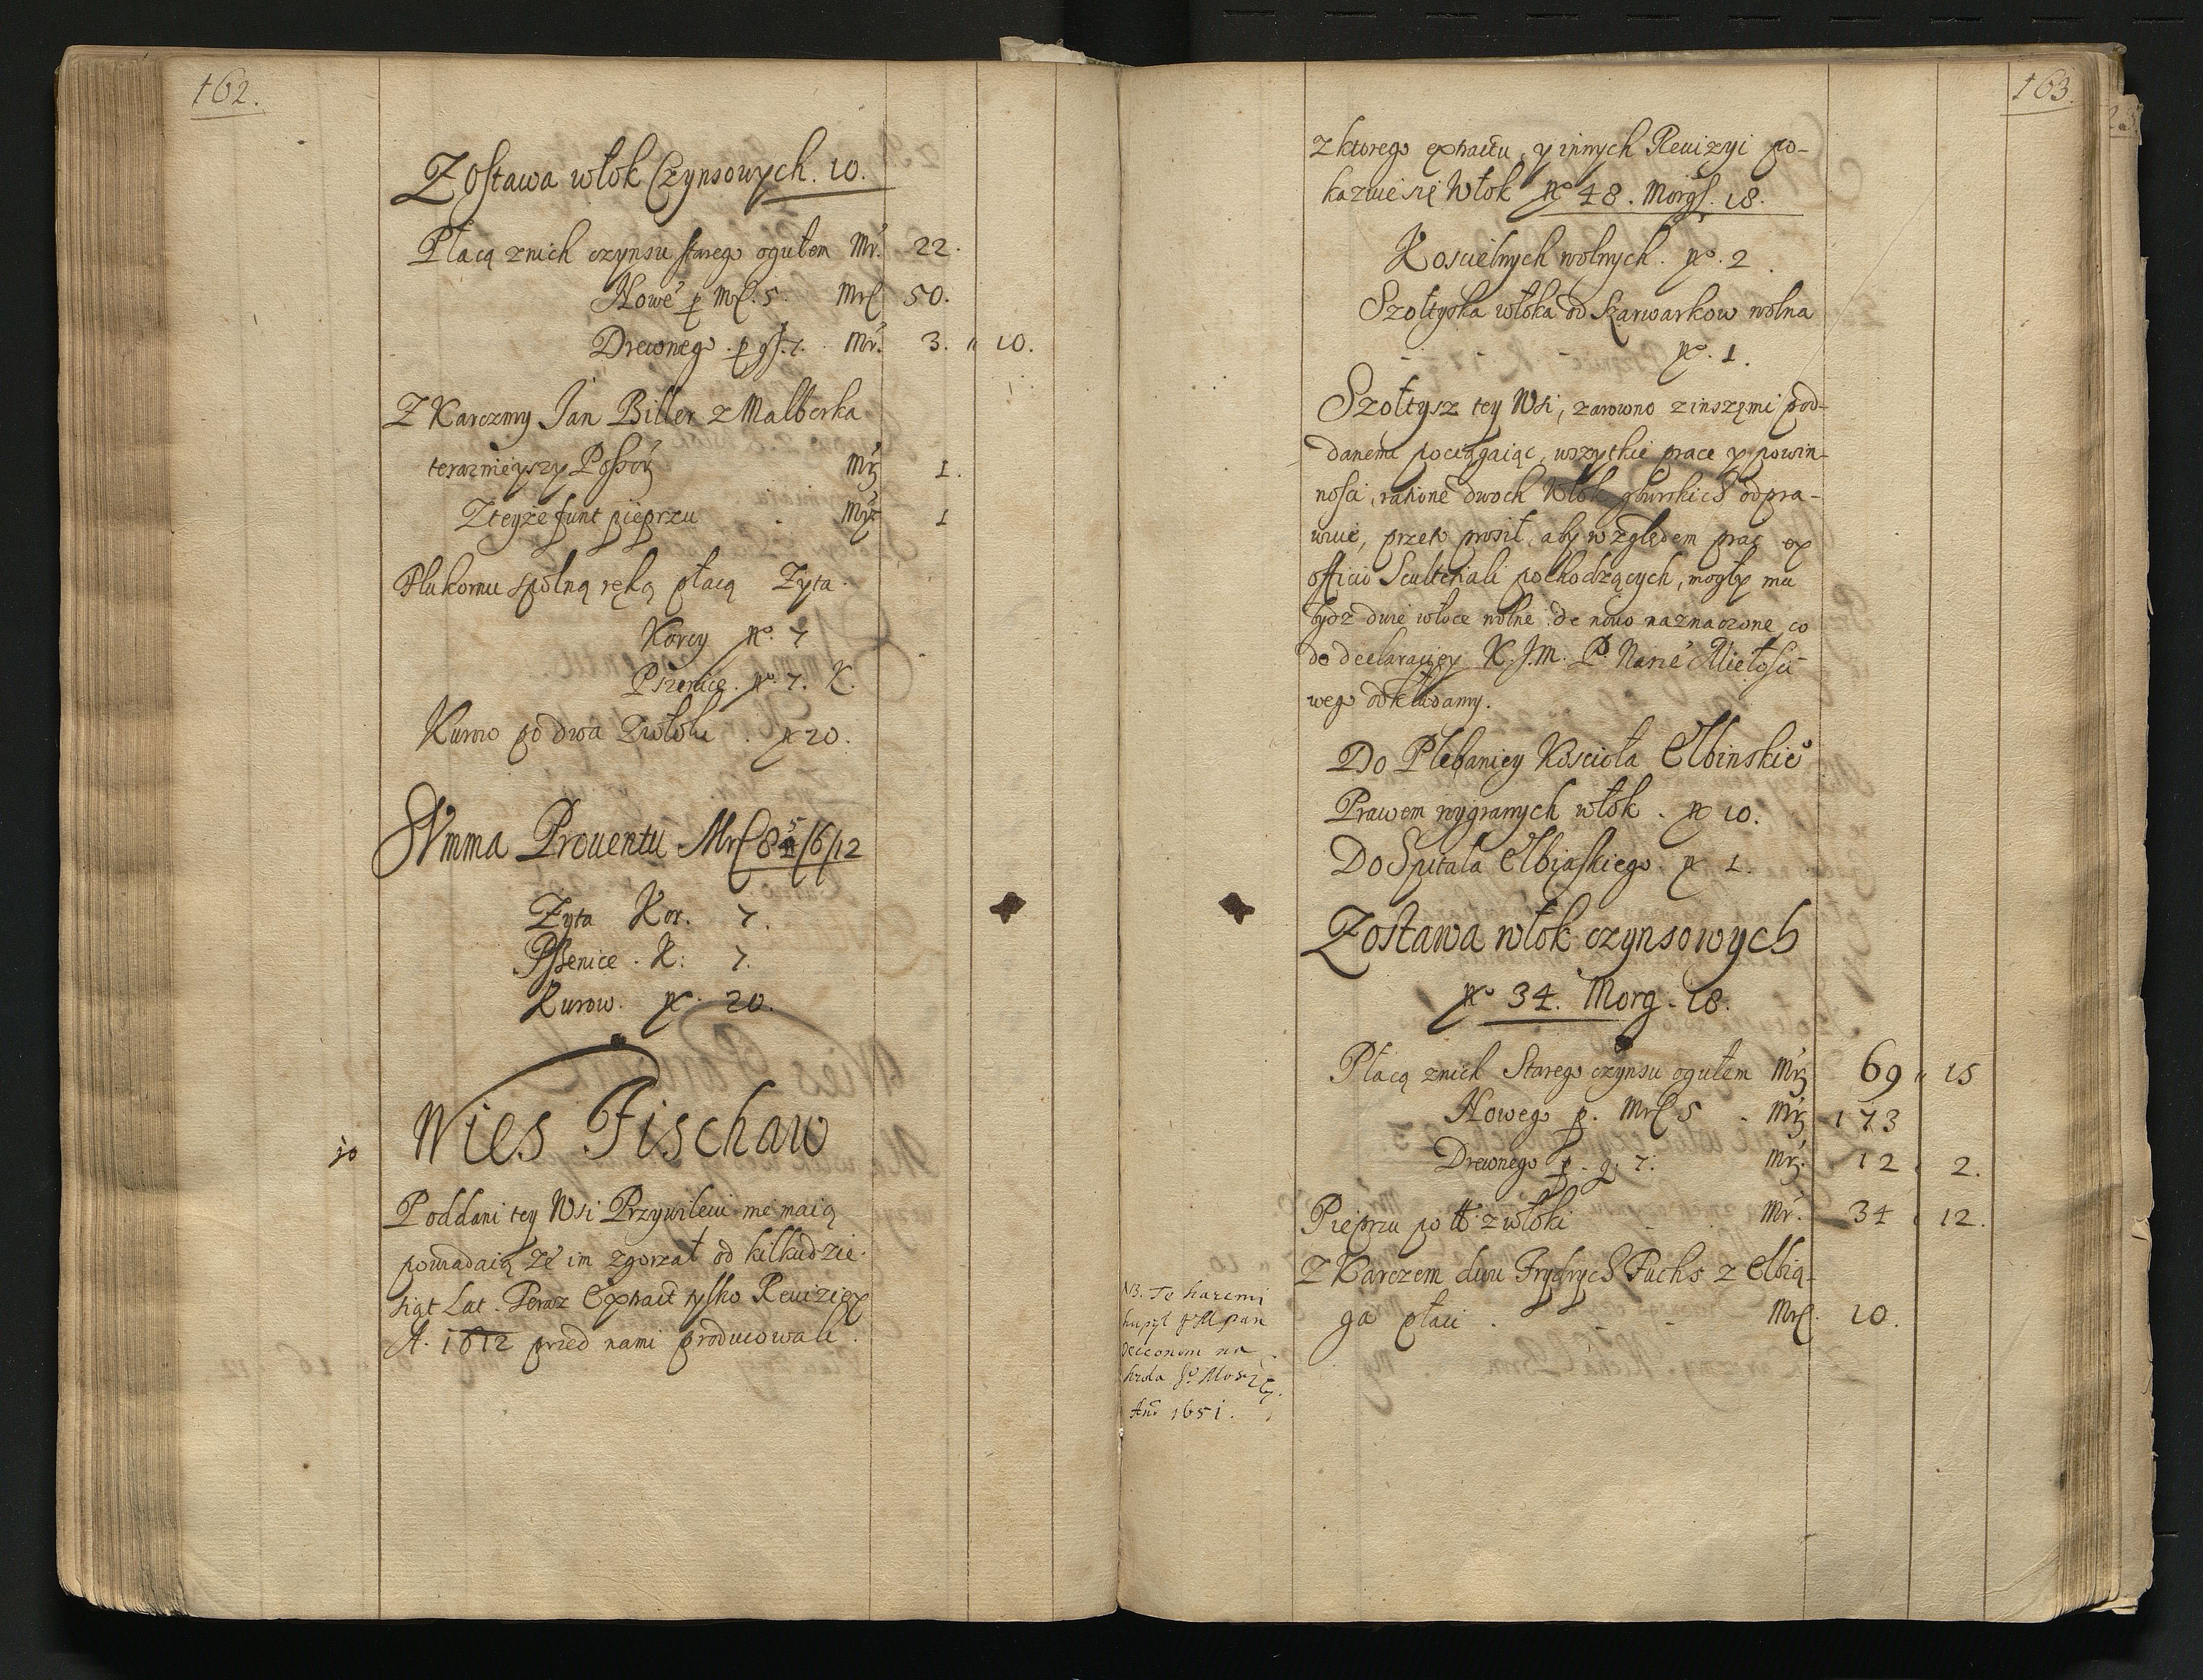 162.
Zostawa włok Czynsowych. 10.
Płacą znich czynsu starego ogułem Mr. 22.
Nowe° p Mr. 5. Mr 50.
Drewnego. p gs. 7. Mr. 3. " 10.
Z Karczmy Jan Biller z Malborka
teraznieyszy Mr 1.
Zteyże funt pieprzu Mr 1
Plukornu spolną ręką płacą Żyta.
Korcy N° 7
Pszenice. N° 7. K.
Kurow po dwa Zwłoki. N 20.
Summa Prouentu Mr 85/6/12
Żyta Kor. 7.
Pszenice. K: 7.
Kurow. N. 20.
Wies Fischaw
Poddani tey Wsi Przywileiu nie maią
powiadaią że im zgorzał od kilkudzie-
siąt Lat. Teraz Extract tylko Reuiziey
A. 1612 przed nami producowali.
163.
z ktorego extractu, y innych Reuizyi po-
kazuie się Włok N° 48. Morg. 18.
Koscielnych wolnych. N°. 2.
Szołtyska włoka od Szarwarkow wolna
N°. 1.
Szołtysz tey Wsi, zarowno zinszęmi pod-
danemi pociągaiąc, wszytkie prace y powin-
nosci, ratione dwoch Włok gburskich odpra-
wuie, przeto prosił, aby względem prac ex
officio Scultetiali pochodzących, mogły mu
bydz dwie włoce wolne de nouo naznaczone, co
do declaraciey K. J. M. P. Nasze° Miłosci-
wego odkładamy.
Do Plebaniey Koscioła Elbinskie°
Prawem wygranych włok. N 10.
Do Szpitala Elbiąskiego. N 1.
Zostawa włok czynsowych
N° 34. Morg. 18.
Płacą znich Starego czynsu ogułem Mr 69 " 15
Nowego p. Mr 5 . Mr 173
Drewnego p. g. 7. Mr. 12 " 2.
Pieprzu po ℔. z włoki Mr. 34 " 12.
Z Karczem dwu Frydrych Fuchs z Elbią-
ga płaci . Mr. 10.
NB. Te karcmi
kupył JM pan
oeconom na
krola J° Mosz
An° 1651.